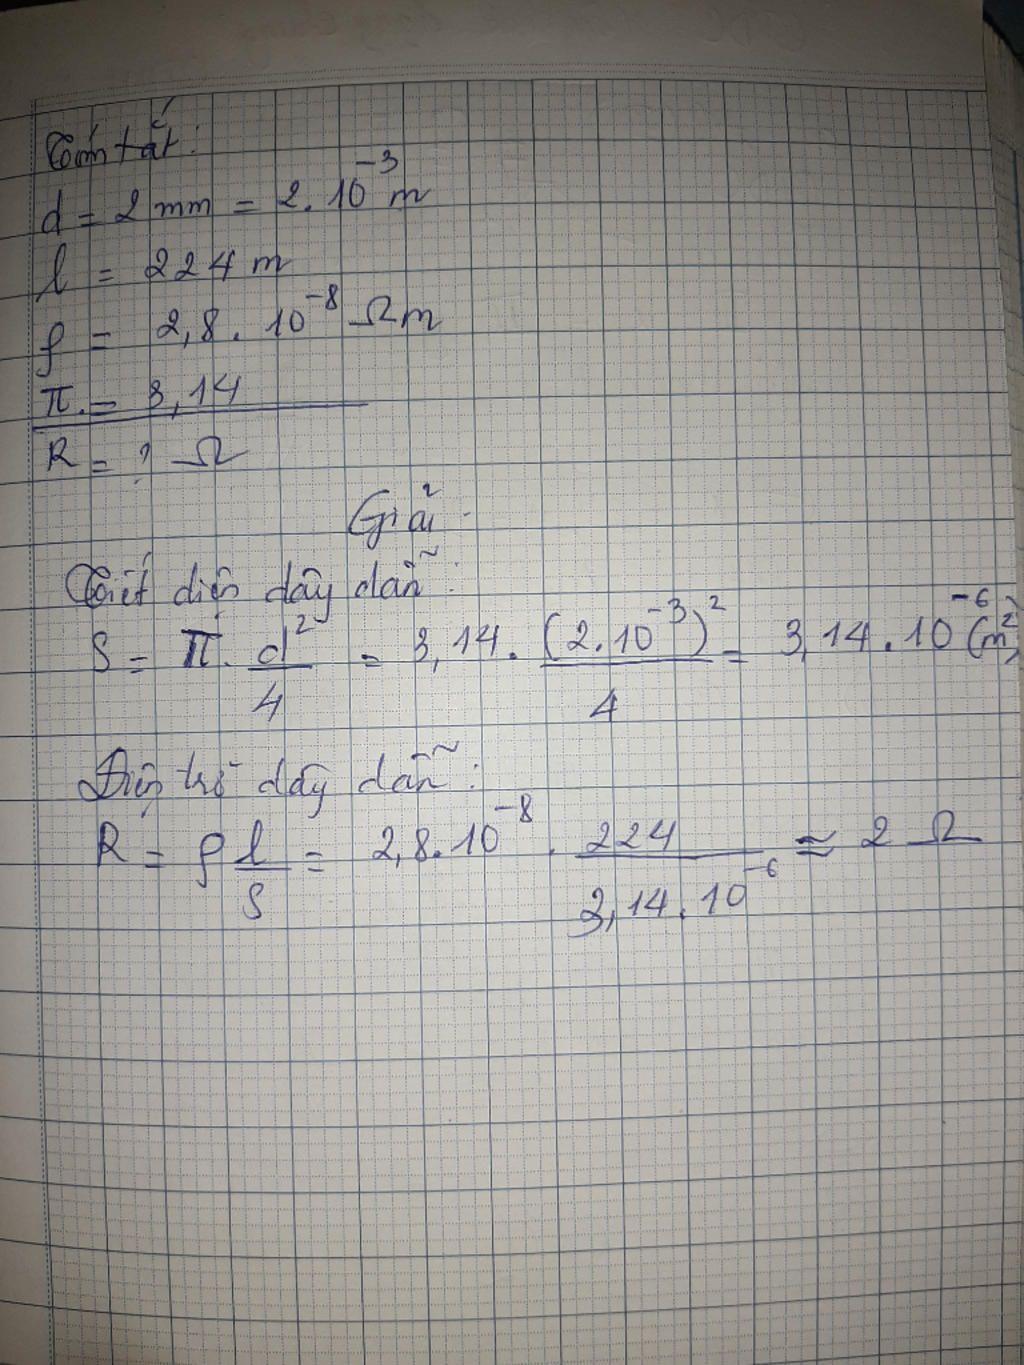 Tóm tắt:
d = 2 mm = 2.10⁻³ m
l = 224 m
ρ = 2,8.10⁻⁸ Ωm
π = 3,14
R = ? Ω
Giải
Tiết diện dây dẫn:
S = π. d²/4 = 3,14. (2.10⁻³)²/4 = 3,14.10⁻⁶ (m²)
Điện trở dây dẫn:
R = ρ l/S = 2,8.10⁻⁸ . 224/3,14.10⁻⁶ ≈ 2 Ω